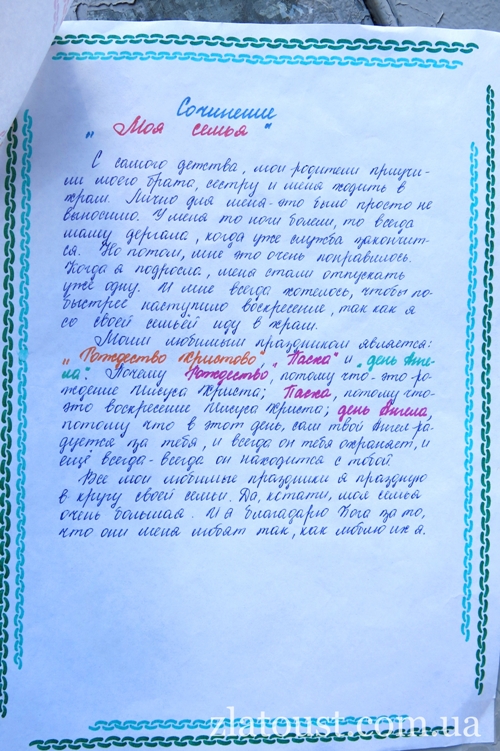 Сочинение
" Моя семья "
С самого детства, мои родители приучи-
ли моего брата, сестру и меня ходить в
храм. Лично для меня - это было просто не
выносимо. У меня то ноги болели, то всегда
маму дергала, когда уже служба закончит-
ся. Но потом, мне это очень понравилось.
Когда я подросла, меня стали отпускать
уже одну. И мне всегда хотелось, чтобы по-
быстрее наступило воскресение, так как я
со своей семьёй иду в храм.
Моими любимыми праздником является:
"Рождество Христово", "Пасха" и "день Анге-
ла". Почему Рождество, потому что - это ро-
ждение Иисуса Христа; Пасха, потому что-
это воскресение Иисуса Христа; день Ангела,
потому что в этот день, сам твой Ангел ра-
дуется за тебя, и всегда он тебя охраняет, и
ещё всегда-всегда он находится с тобой.
Все мои любимые праздники я праздную
в кругу своей семьи. Да, кстати, моя семья
очень большая. И я благадарю Бога за то,
что они меня любят так, как люблю их я.
zlatoust.com.ua